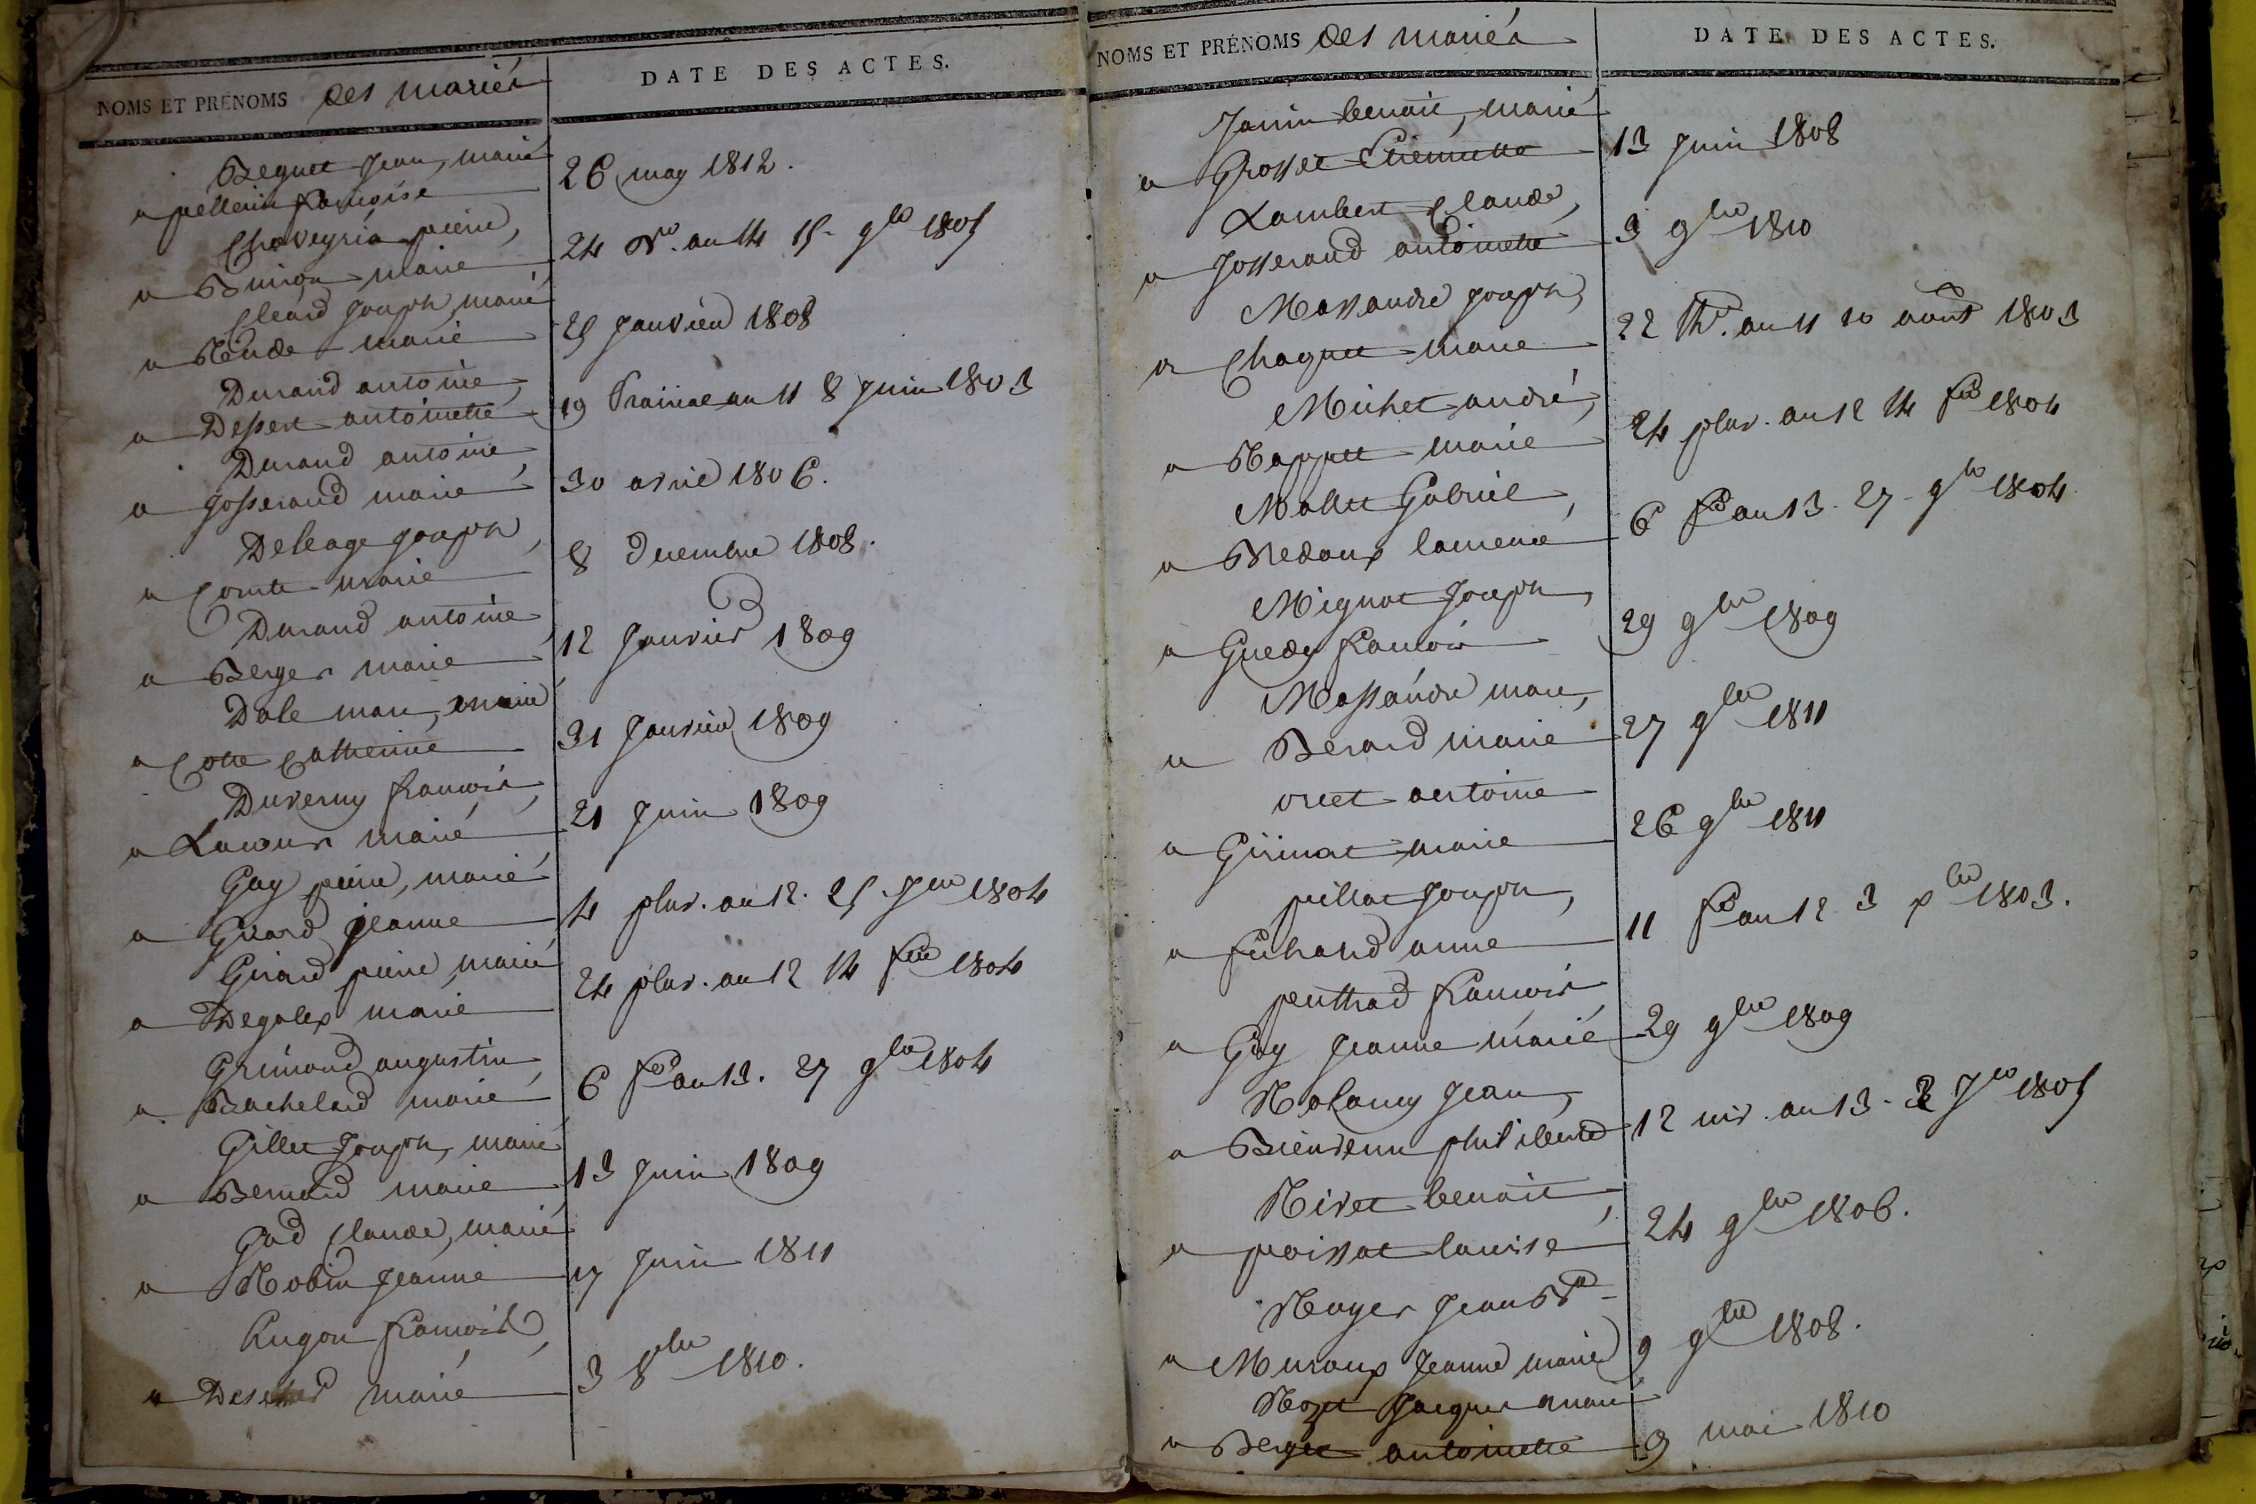 NOMS ET PRÉNOMS des mariés
DATE DES ACTES.
Beguet Jean, marié
a pellerin françoise
26 may 1812.
Chaveyria pierre,
a Buisson marie
24 Bre. an 14 15. 9bre 1805
Cléard Joseph marié
a marie
25 Janvier 1808
Durand antoine,
a Dessert antoinette
19 Prairial an 11 8 Juin 1803
Durand antoine,
a Josserand marie
30 avril 1806.
Deleage Joseph,
a Comte marie
8 decembre 1808.
Durand antoine,
a Berger marie
12 Janvier 1809
Dole marc, marié
a Cotte Catherine
31 Janvier 1809
Duverny francois,
a Lacour marie
21 Juin 1809
Gay pierre, marié
a Girard Jeanne
4 pluv. an 12. 25. Jer 1804
Girard pierre, marié
a Degoles marie
24 pluv. an 12 14 fer 1804
Grimand augustin,
a Bachelard marie
6 fre an 13. 27 9bre 1804
Gillet Joseph, marié
a Bernard marie
13 Juin 1809
Gad Claude, marié
a Robin Jeanne
17 Juin 1811
hugon francois,
a marie
3 8bre 1810.
NOMS ET PRÉNOMS des mariés
DATE DES ACTES.
Janin benoit, marié
a Grosset Etiennette
13 Juin 1808
Lambert Claude,
a Josserand antoinette
3 9bre 1810
Massandre Joseph,
a Chaguet marie
22 thr. an 11 10 août 1803
Michet andré,
a marie
24 pluv. an 12 14 fer 1804
Mallet Gabriel,
a Bredoux laurence
6 fre an 13. 27. 9bre 1804
Mignot Joseph,
a Guedy francoise
29 9bre 1809
Massandre marc,
a Berard marie
27 9bre 1811
oriet antoine
a Girimat marie
26 9bre 1811
pillat Joseph,
a fichard anne
11 fre an 12 3 xbre 1803.
penthad francois
a Gay Jeanne marié
29 9bre 1809
Jean,
a Bienvenu philiberte
12 niv. an 13. 2 Jer 1805
Rivet benoit,
a poissat louise
24 9bre 1806.
Royer Jean Bte
a Muraux Jeanne marie
9 9bre 1808.
Rozet Jacques marié
a Berget antoinette
9 mai 1810